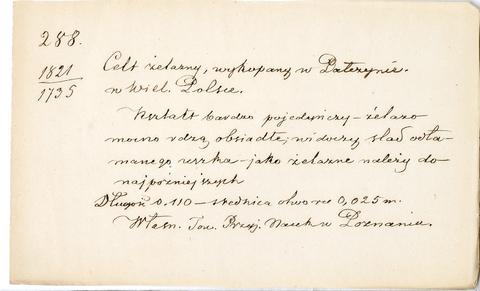 288.
1821
1735
Celt żelazny, wykopany w Pałczynie.
w Wiel. Polsce.
Kształt bardzo pojedyńczy – żelazo
mocno rdzą obsiadłe; widoczny ślad odła-
manego uszka – jako żelazne należy do
najpóźniejszych
Długość 0.110 – średnica otworu 0,025 m.
Własn. Tow. Przyj. Nauk w Poznaniu.